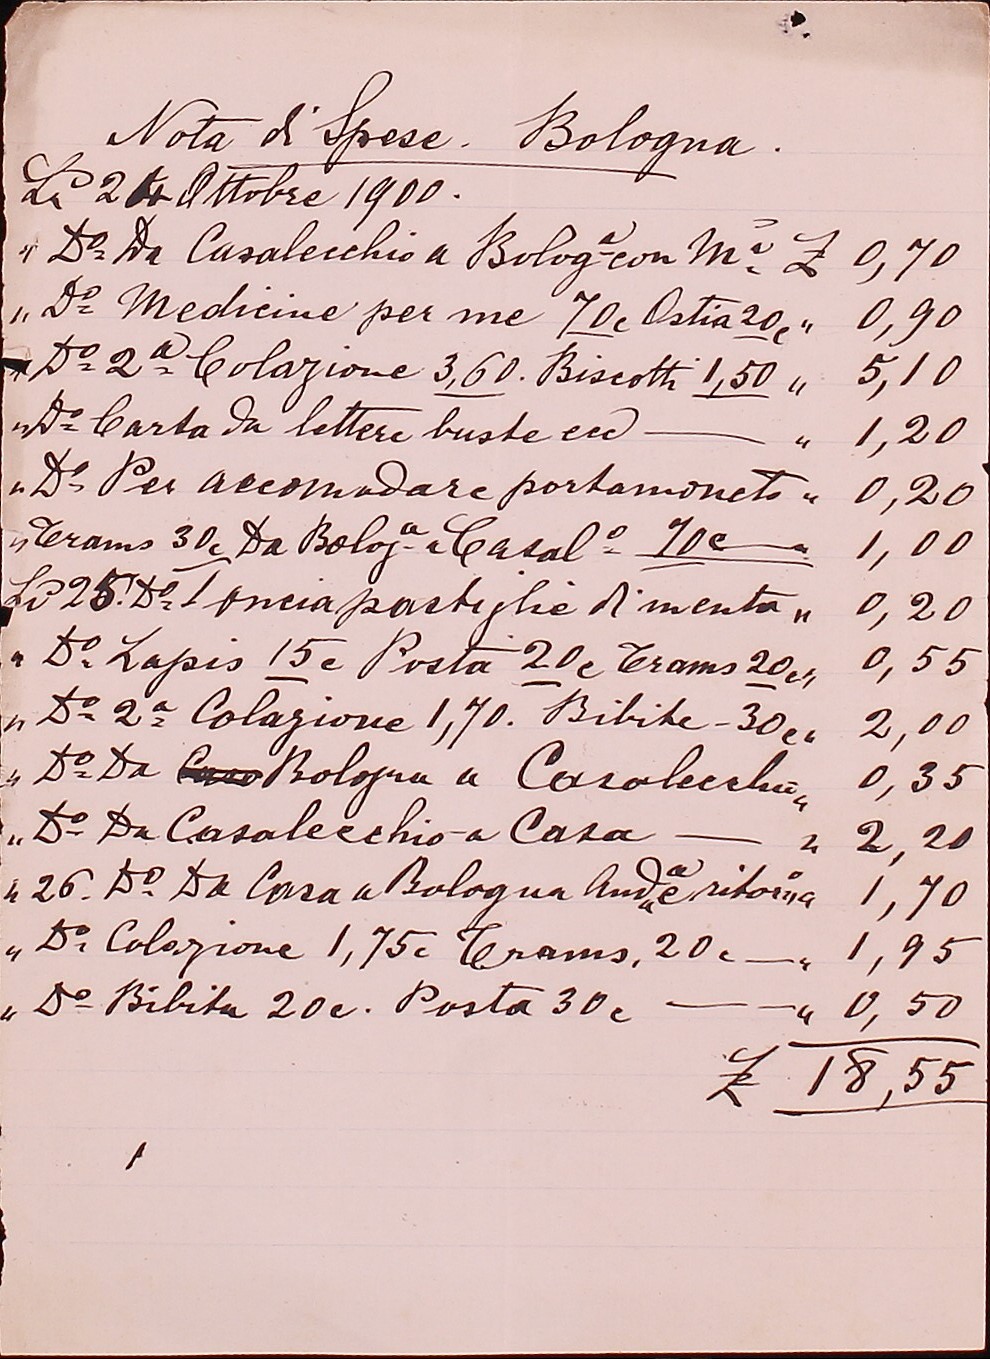 Nota di Spese. Bologna.
Li 24 Ottobre 1900.
" Do. Da Casalecchio a Bologa con Ma. £ 0,70
" Do Medicine per me 70c Ostia 20c " 0,90
" Do 2a Colazione 3,60. Biscotti 1,50 " 5,10
" Do Carta da lettere buste ecc — " 1,20
" Do Per accomodare portamoneto " 0,20
" Trams 30c Da Bologa a Casalo 70c — " 1,00
Li 25. Do 1 oncia pastiglie di menta " 0,20
" Do. Lapis 15c Posta 20c Trams 20c " 0,55
" Do 2a Colazione 1,70. Bibite - 30c " 2,00
" Do Da Bologna a Casalecchio " 0,35
" Do Da Casalecchio a Casa — " 2,20
" 26. Do Da Casa a Bologna Anda e ritorno " 1,70
" Do. Colazione 1,75c Trams. 20c — " 1,95
" Do Bibita 20c. Posta 30c — " 0,50
£ 18,55